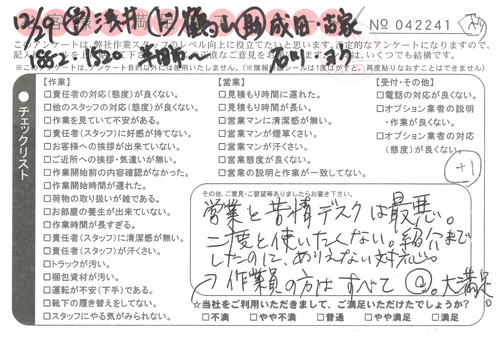 12/29 浅井 鶴山 成田・古家
№ 042241
このアンケートは、弊社作業スタッフのレベル向上に役立てたいと思います。
1882-1520
※このアンケートは、アンケート目的以外には使用いたしません。
チェックリスト
【作業】
□責任者の対応(態度)が良くない。
□他のスタッフの対応(態度)が良くない。
□作業を見ていて不安がある。
□責任者(スタッフ)に好感が持てない。
□お客様への挨拶が出来ていない。
□ご近所への挨拶・気遣いが無い。
□作業開始前の内容確認がなかった。
□作業開始時間が遅れた。
□荷物の取り扱いが雑である。
□お部屋の養生が出来ていない。
□作業時間が長すぎる。
□責任者(スタッフ)に清潔感が無い。
□責任者(スタッフ)が汗くさい。
□トラックが汚い。
□梱包資材が汚い。
□運転が不安(下手)である。
□靴下の履き替えをしてない。
□スタッフにやる気がみられない。
【営業】
□見積もり時間に遅れた。
□見積もり時間が長い。
□営業マンに清潔感が無い。
□営業マンが煙草くさい。
□営業マンが汗くさい。
□営業態度が良くない。
□営業の説明と作業が一致してない。
【受付・その他】
□電話の対応が良くない。
□オプション業者の説明・作業が良くない。
□オプション業者の対応(態度)が良くない。
+1
その他、ご意見・ご要望等ありましたらお書き下さい。
営業と苦情デスクは最悪。
二度と使いたくない。紹介まで
したのに、ありえない対応。
→作業員の方はすべて◎。大満足。
☆当社をご利用いただきまして、ご満足いただけたでしょうか?
□不満 □やや不満 □普通 □やや満足 □満足